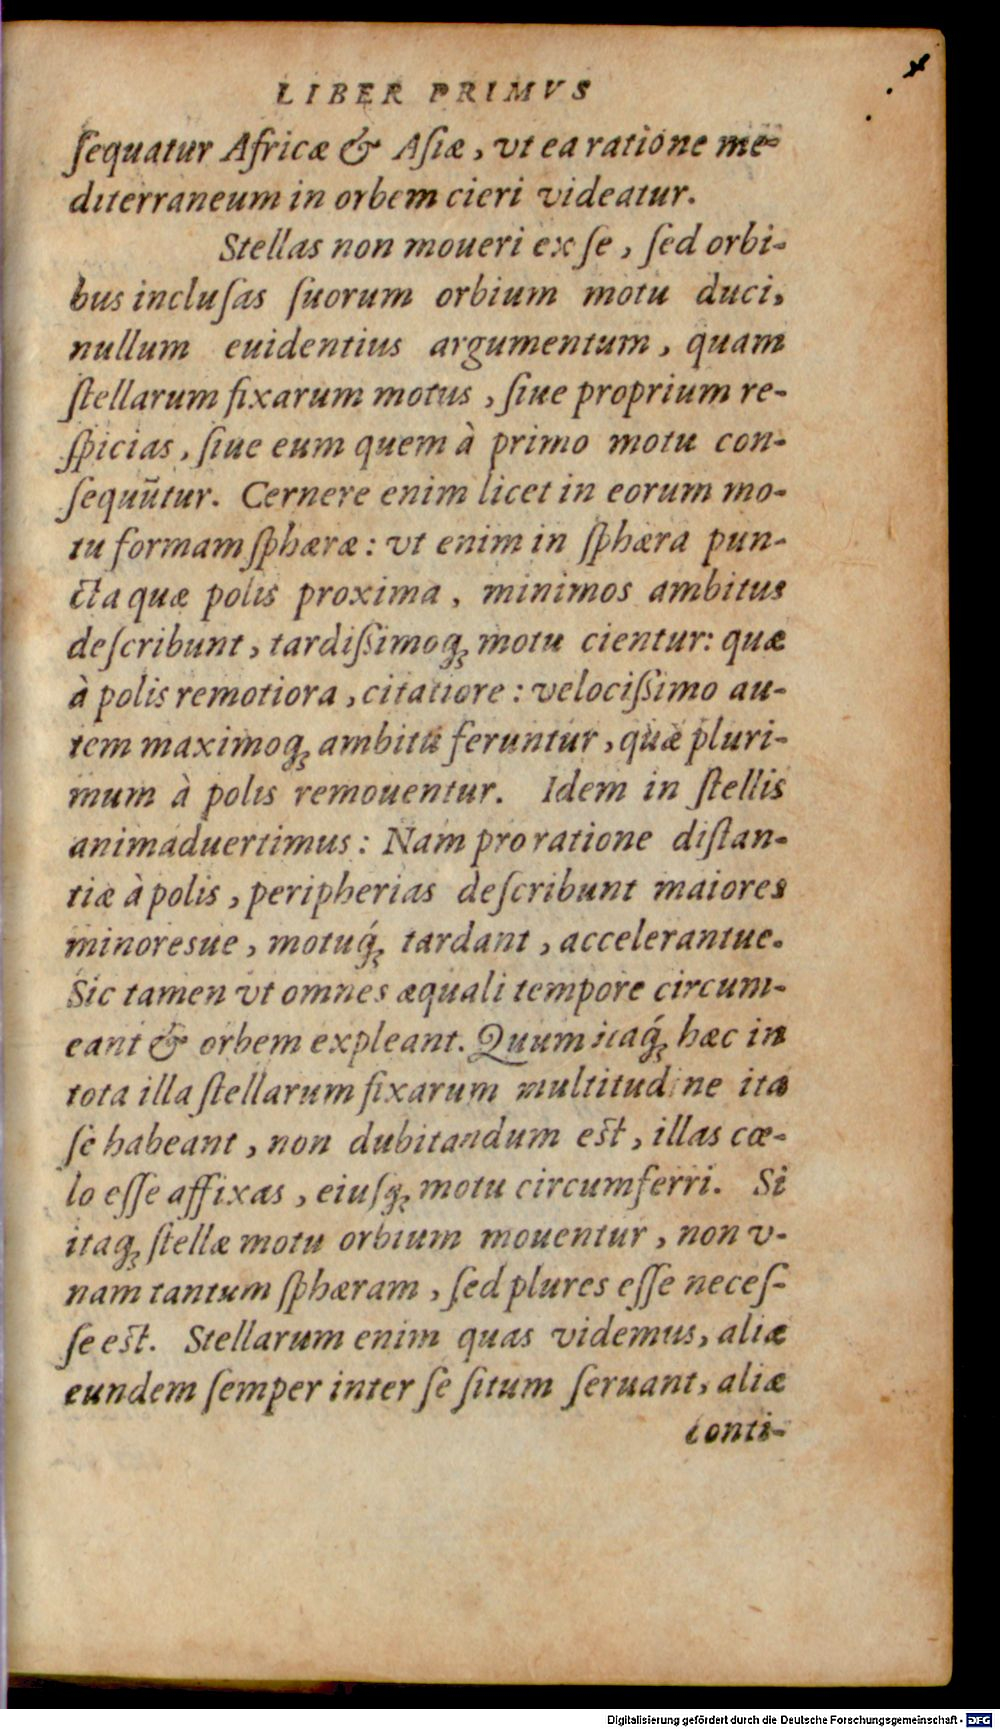 LIBER PRIMVS
ſequatur Africæ & Aſiæ, vt ea ratione me-
diterraneum in orbem cieri videatur.
Stellas non moueri ex ſe, ſed orbi-
bus incluſas ſuorum orbium motu duci,
nullum euidentius argumentum, quam
ſtellarum fixarum motus, ſiue proprium re-
ſpicias, ſiue eum quem à primo motu con-
ſequūtur. Cernere enim licet in eorum mo-
tu formam ſphæræ: vt enim in ſphæra pun-
cta quæ polis proxima, minimos ambitus
deſcribunt, tardiſsimoq; motu cientur: quæ
à polis remotiora, citatiore: velociſsimo au-
tem maximoq; ambitu feruntur, quæ pluri-
mum à polis remouentur. Idem in ſtellis
animaduertimus: Nam pro ratione diſtan-
tiæ à polis, peripherias deſcribunt maiores
minoresue, motuq́; tardant, accelerantue.
Sic tamen vt omnes æquali tempore circum-
eant & orbem expleant. Quum itaq́; hæc in
tota illa ſtellarum fixarum multitudine ita
ſe habeant, non dubitandum eſt, illas cœ-
lo eſſe affixas, eiuſq; motu circumferri. Si
itaq; ſtellæ motu orbium mouentur, non v-
nam tantum ſphæram, ſed plures eſſe neceſ-
ſe eſt. Stellarum enim quas videmus, aliæ
eundem ſemper inter ſe ſitum ſeruant, aliæ
conti-
Digitalisierung gefördert durch die Deutsche Forschungsgemeinschaft - DFG